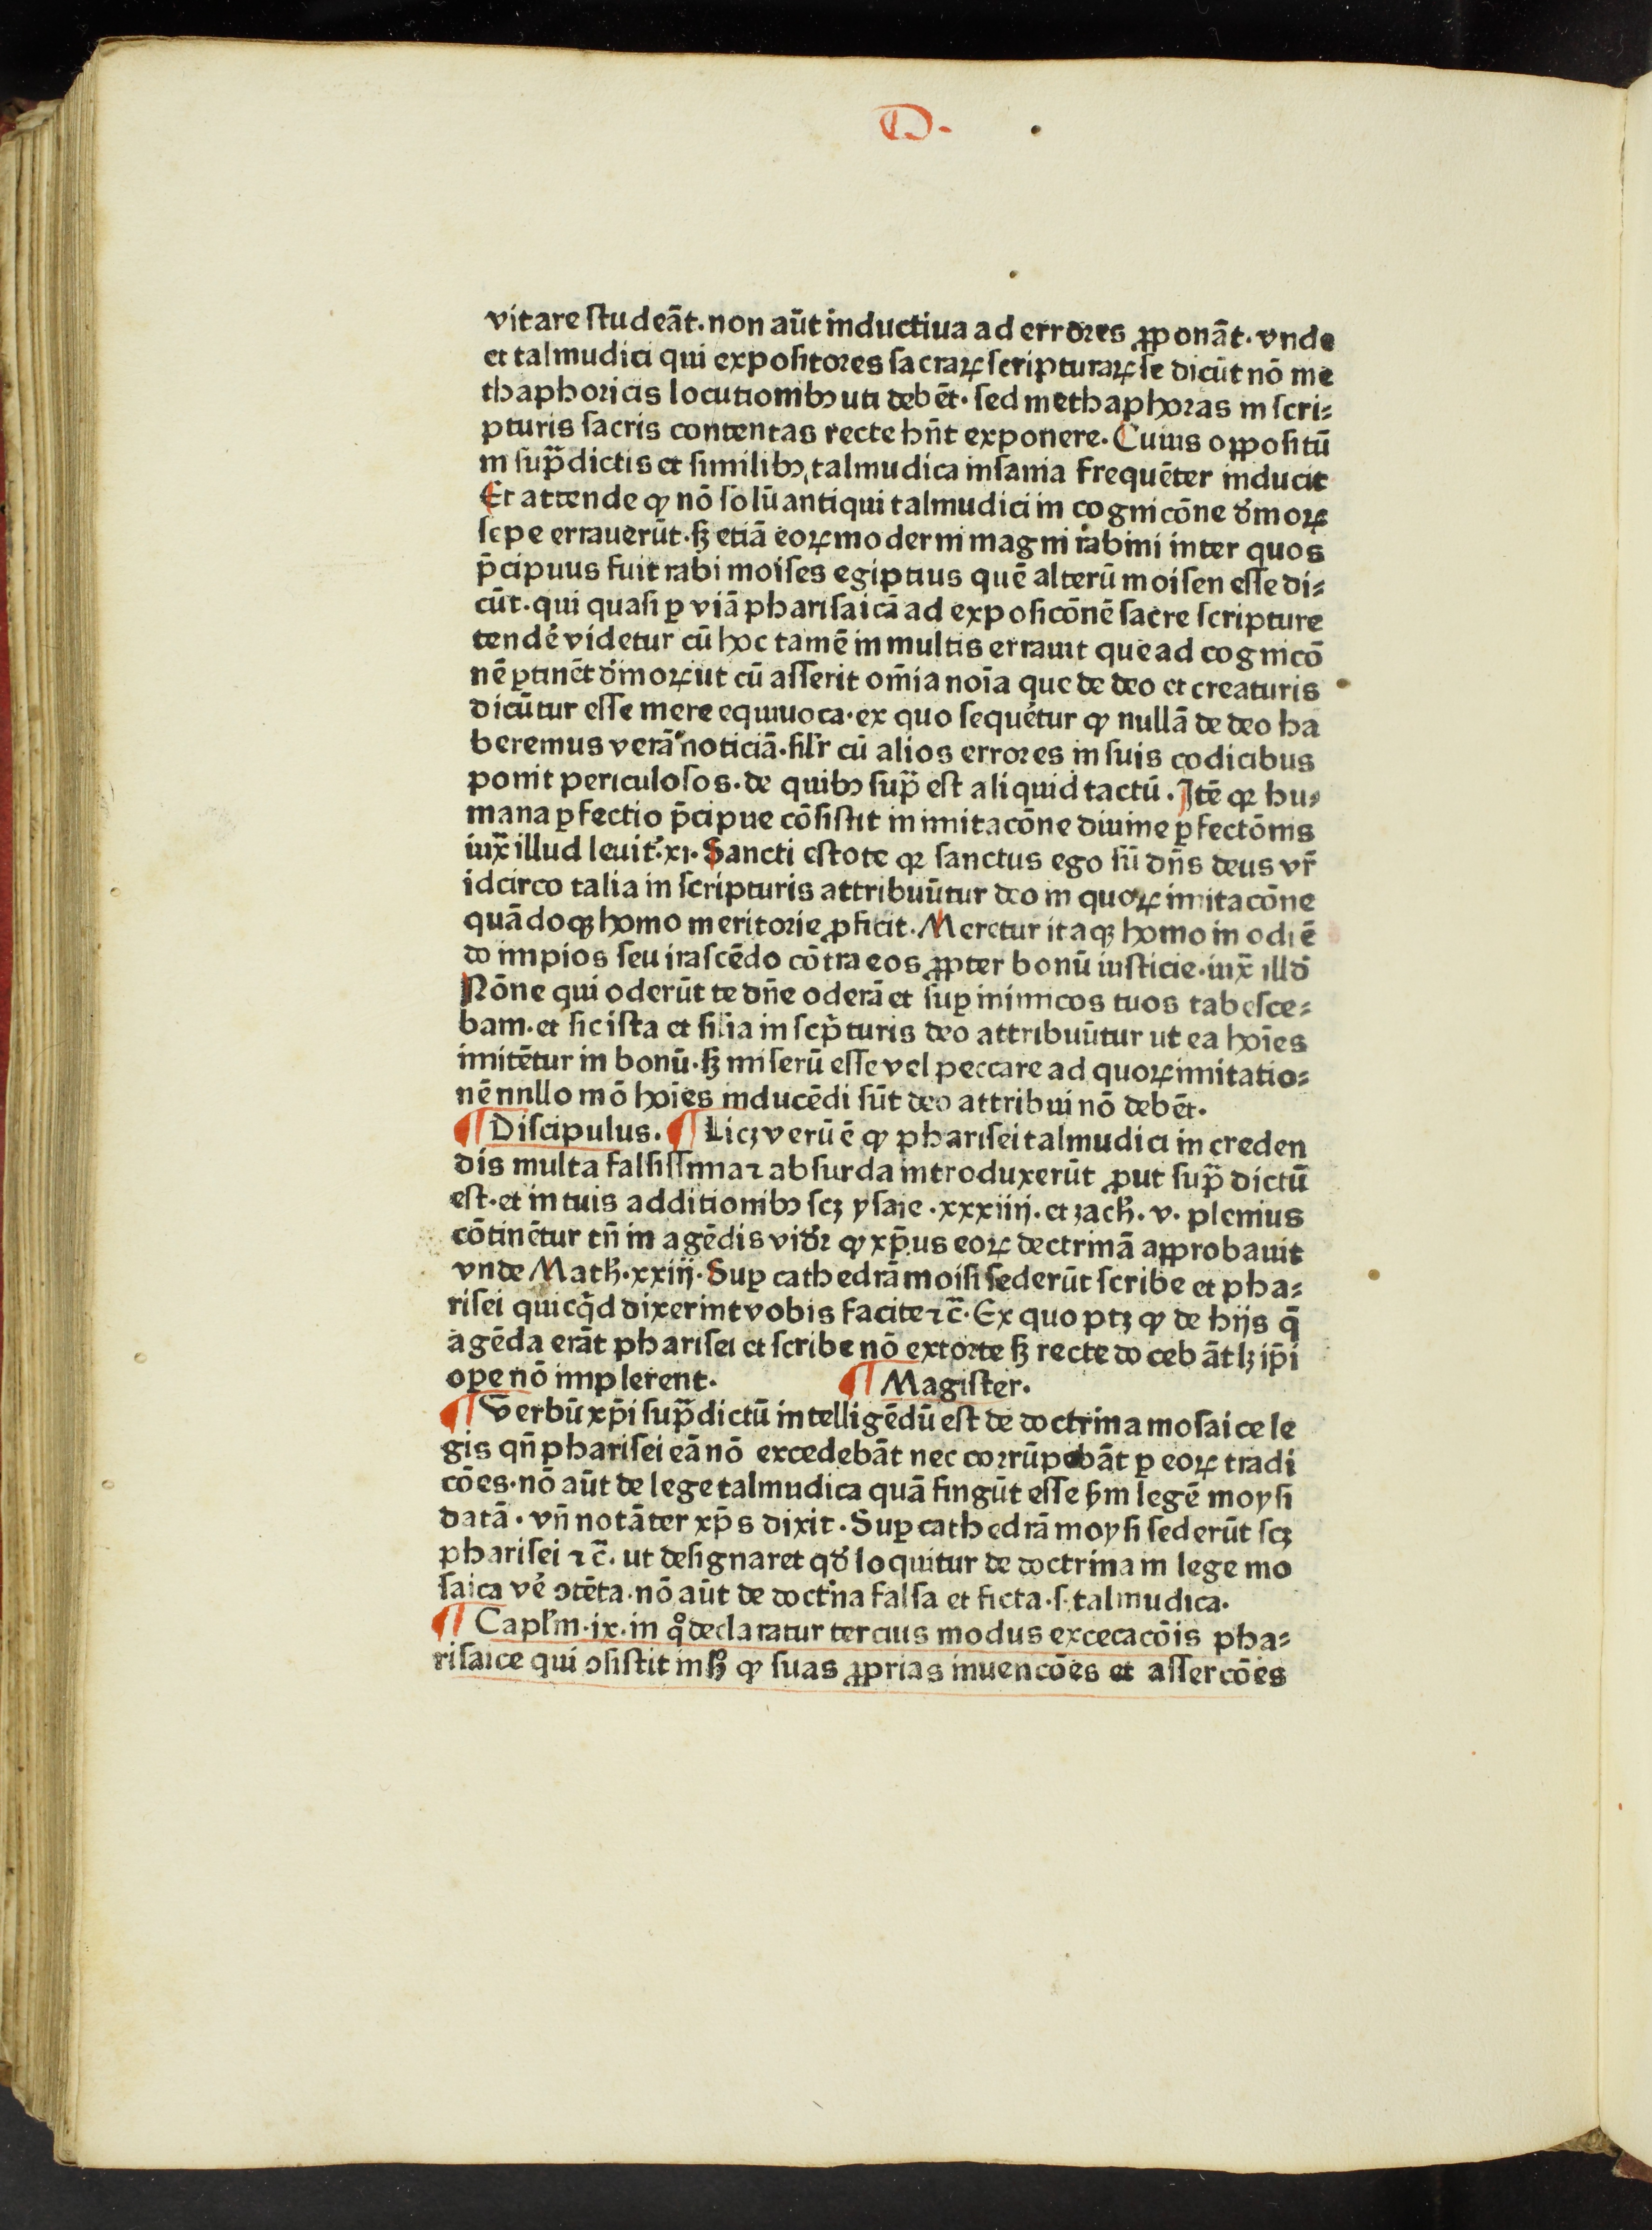 D.
vitare ſtudeāt. non aūt inductiua ad errores ꝓponāt. vnde
et talmudici qui expoſitores ſacraꝝ ſcripturaꝝ ſe dicūt nō me
thaphoricis locutionibꝰ uti debēt. ſed methaphoras in ſcri⸗
pturis ſacris contentas recte hn̄t exponere. Cuius oppoſitū
in ſup̄dictis et ſimilibꝰ, talmudica inſania frequēter inducit
Et attende ꝙ nō ſolū antiqui talmudici in cognicōne dīnoꝝ
ſepe errauerūt. ſꝫ etiā eoꝝ moderni magni rabini inter quos
p̄cipuus fuit rabi moiſes egiptius quē alterū moiſen eſſe di⸗
cūt. qui quaſi ꝑ viā phariſaicā ad expoſicōnē ſacre ſcripture
tendē videtur cū hoc tamē in multis errauit que ad cognicō
nē ꝑtinēt dīnoꝝ ut cū aſſerit om̄ia noīa que de deo et creaturis
dicūtur eſſe mere equiuoca. ex quo ſequētur ꝙ nullā de deo ha
beremus verā noticiā. ſilr cū alios errores in ſuis codicibus
ponit periculoſos. de quibꝰ ſup̄ eſt aliquid tactū. Itē qꝛ hu⸗
mana ꝑfectio p̄cipue cōſiſtit in imitacōne diuine ꝑfectōnis
iux̄ illud leuit̄. xi. Sancti eſtote qꝛ ſanctus ego ſū dn̄s deus vr̄
idcirco talia in ſcripturis attribuūtur deo in quoꝝ imitacōne
quādoqꝫ homo meritorie ꝓficit. Meretur itaqꝫ homo in odiē
do impios ſeu iraſcēdo cōtra eos ꝓpter bonū iuſticie. iux̄ illđ
Nōne qui oderūt te dn̄e oderā et ſuꝑ inimicos tuos tabeſce⸗
bam. et ſic iſta et ſilia in ſcp̄turis deo attribuūtur ut ea hoīes
imitētur in bonū. ſꝫ miſerū eſſe vel peccare ad quoꝝ imitatio⸗
nē nnllo mō hoīes inducēdi ſūt deo attribui nō debēt.
¶ Diſcipulus. ¶ Licꝫ verū ē ꝙ phariſei talmudici in creden
dis multa falſiſſima ⁊ abſurda introduxerūt ꝓut ſup̄ dictū
eſt. et in tuis additionibꝰ ſcꝫ yſaie. xxxiiij. et zach. v. plenius
cōtinētur tn̄ in agēdis videꝛ ꝙ xp̄us eoꝝ dectrinā approbauit
vnde Math. xxiij. Suꝑ cathedrā moiſi ſederūt ſcribe et pha⸗
riſei quicq̄d dixerint vobis facite ⁊c̄. Ex quo ptꝫ ꝙ de hijs q̄
agēda erāt phariſei et ſcribe nō extorte ſꝫ recte docebāt lꝫ ip̄i
ope nō implerent. ¶ Magiſter.
¶ Verbū xp̄i ſup̄dictū intelligēdū eſt de doctrina moſaice le
gis qn̄ phariſei eā nō excedebāt nec corrūpebāt ꝑ eoꝝ tradi
cōes. nō aūt de lege talmudica quā fingūt eſſe ẜm legē moyſi
datā. vn̄ notāter xp̄s dixit. Suꝑ cathedrā moyſi ſederūt ſcꝫ
phariſei ⁊c̄. ut deſignaret qđ loquitur de doctrina in lege mo
ſaica vē ↄtēta. nō aūt de doctina falſa et ficta. ſ. talmudica.
¶ Caplm. ix. in qͦ declaratur tercius modus excecacōis pha⸗
riſaice qui ↄſiſtit in hꝫ ꝙ ſuas ꝓprias inuencōes et aſſercōes